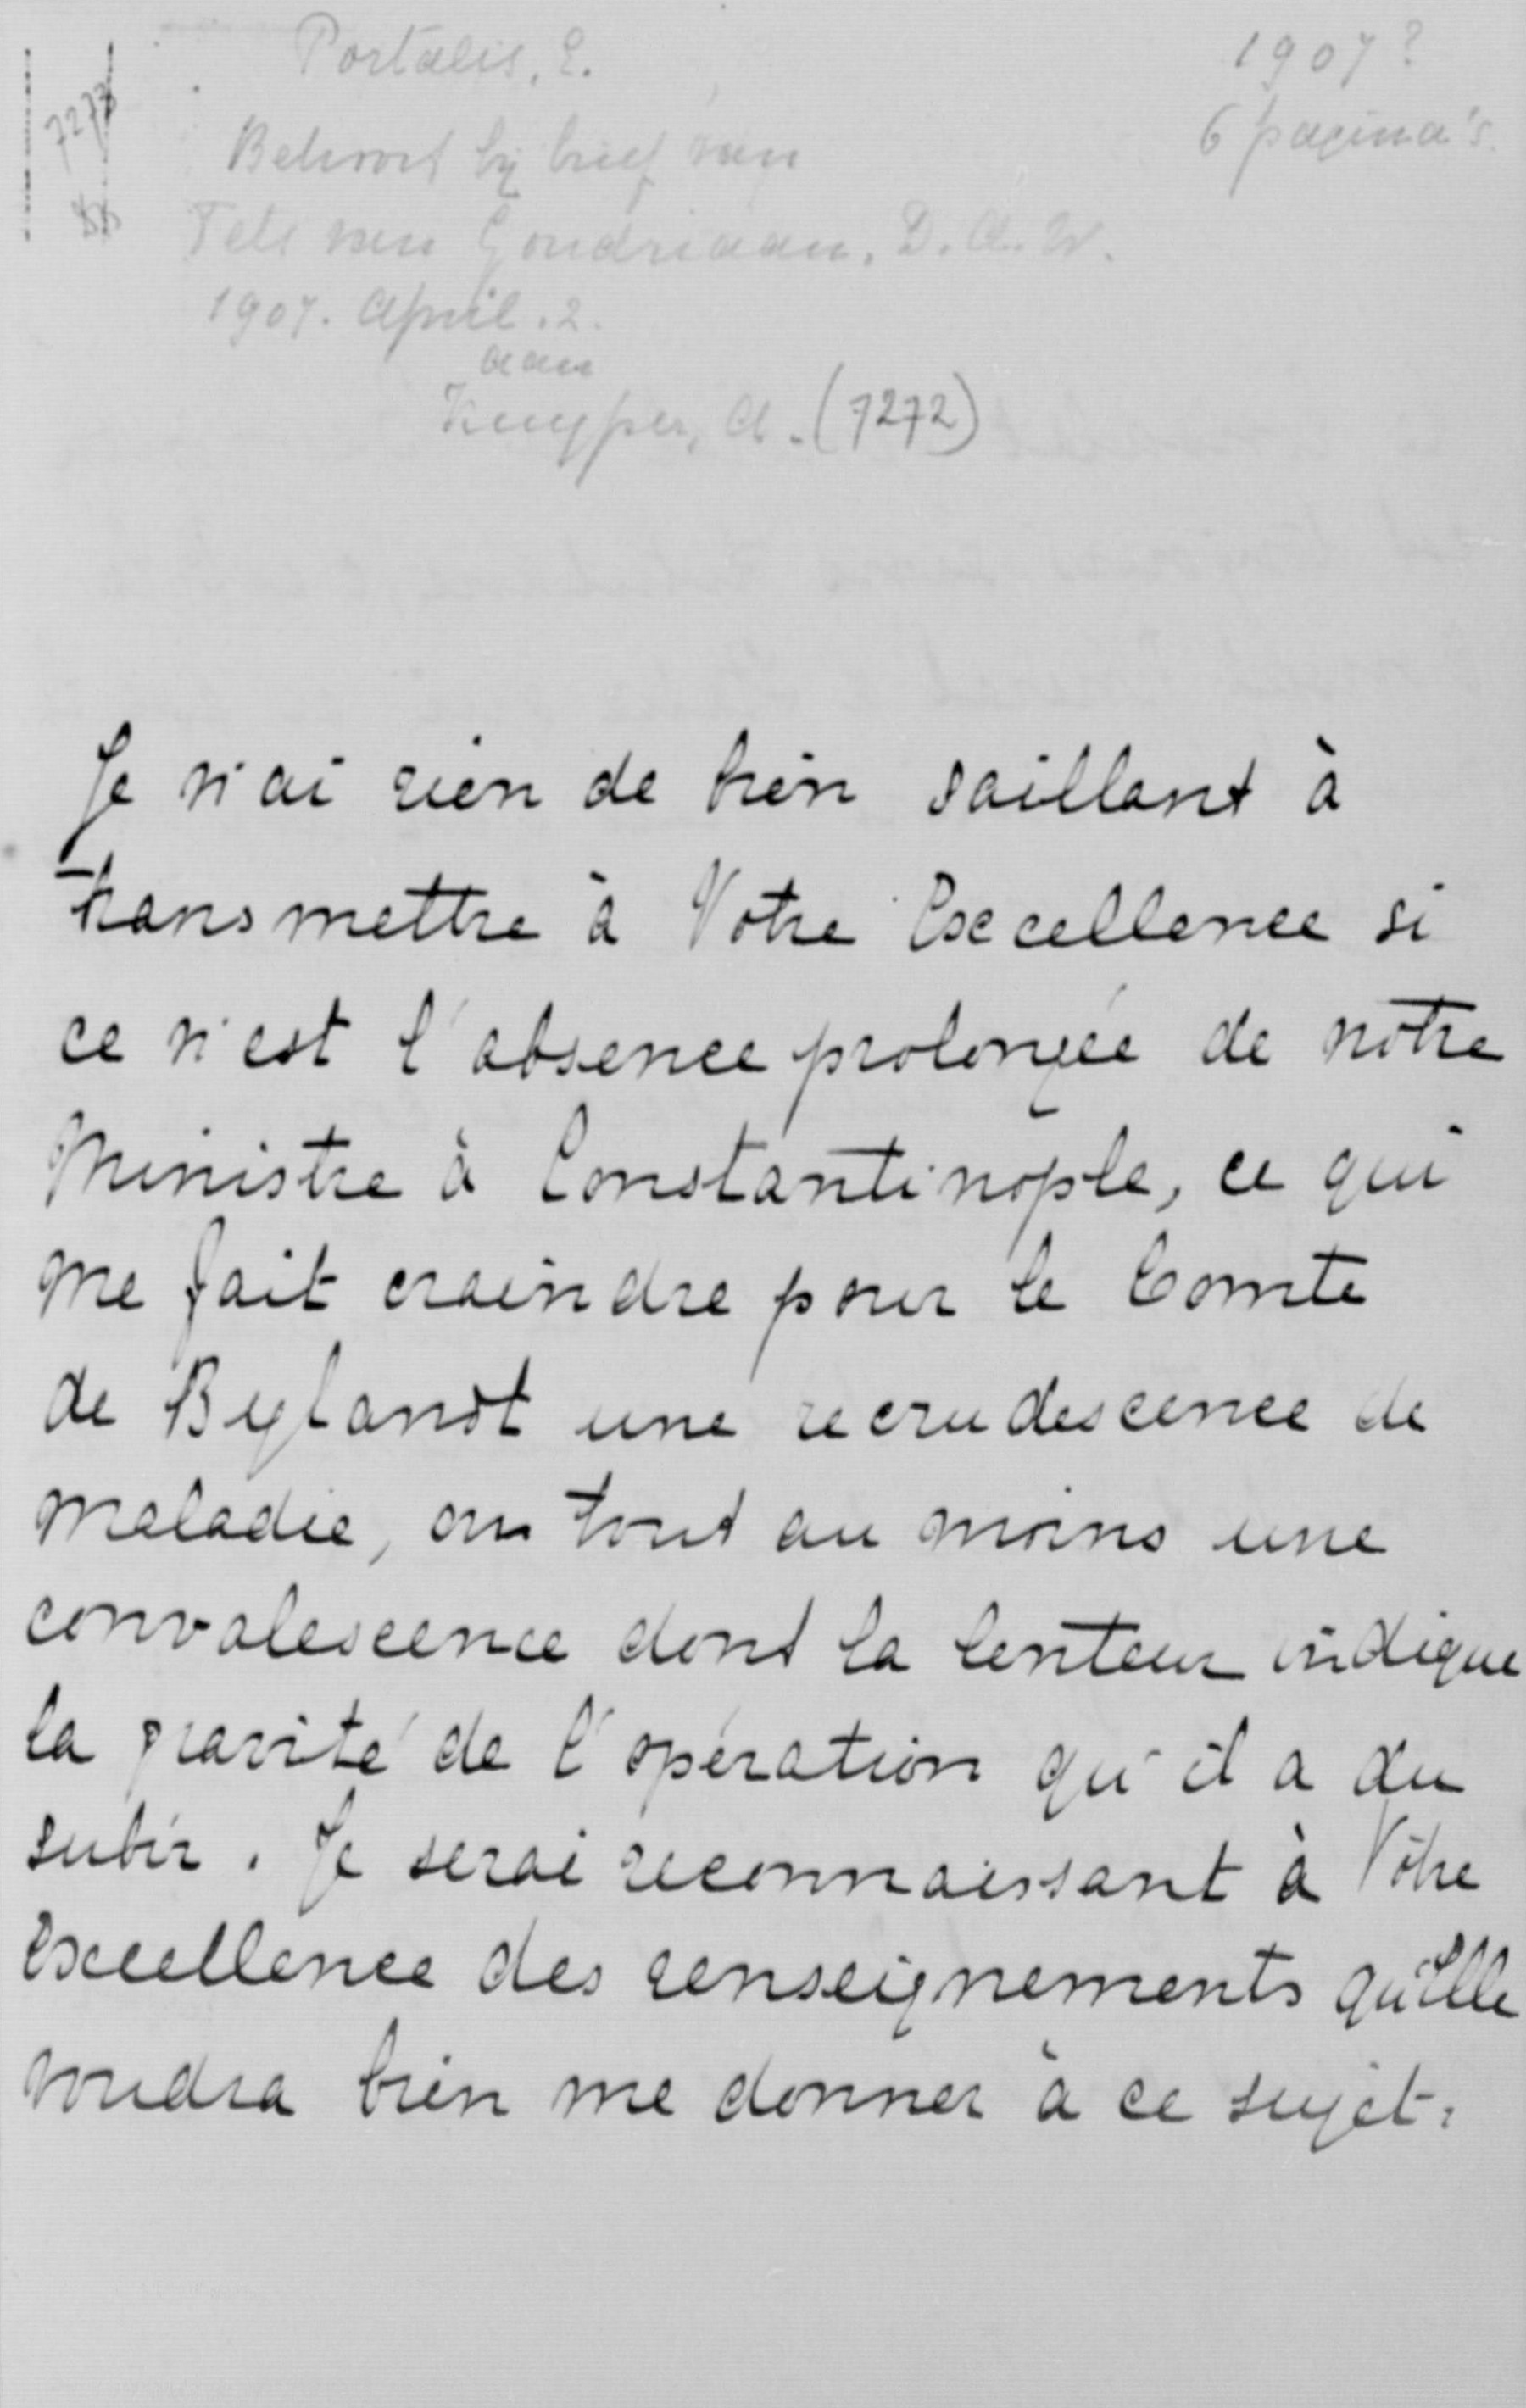 Portalis, E.
1907?
6 pagina's.
7273
Behoort bij brief van
Tets van Goudriaan, D.A.W.
1907. April. 2.
aan
Kuyper, A. (7272)
Je n'ai rien de bien saillant à
transmettre à Votre Excellence si
ce n'est l'absence prolongée de notre
Ministre à Constantinople, ce qui
me fait craindre pour le Comte
de Bylandt une recrudescence de
maladie, ou tout au moins une
convalescence dont la lenteur indique
la gravité de l'opération qu'il a du
subir. Je serai reconnaissant à Votre
Excellence des renseignements qu'Elle
voudra bien me donner à ce sujet.